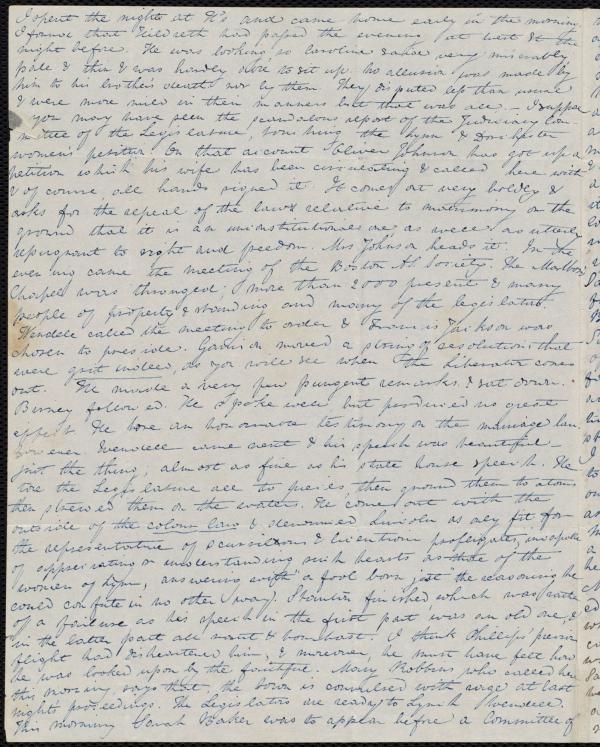 I spent the night at H's and came home early in the morning.
I found that Hildreth had passed the evening at west St the
night before. He was looking so Caroline said very miserably
pale & thin & was hardly able to sit up. no allusion was made by
him to his brother's death nor by them. They disputed less than usual
& were more mild in their manners but that was all. — I suppose
you may have seen the scandalous report of the Judiciary Com-
mittee of the Legislature, touching the Lynn & Dorchester
women's petition. On that account Oliver Johnson has got up a
petition which his wife has been circulating & called here with
& of course all hands signed it. It comes out very boldly &
asks for the repeal of the laws relative to matrimony on the
ground that it is an unconstitutional one, as well as utterly
repugnant to right and freedom. Mrs Johnson heads it. In the
evening came the meeting of the Boston Ah. Society. The Marlboro
Chapel was thronged, more than 2000 present & many
people of property & standing and many of the legislature.
Wendell called the meeting to order & Francis Jackson was
chosen to preside. Garrison moved a string of resolutions that
were grit indeed, as you will see when the Liberator comes
out. He made a very few pungent remarks & sat down.
Birney followed. He spoke well but produced no great
effect. He bore an honorable testimony on the marriage law
however. Wendell came next & his speech was beautiful —
just the thing, almost as fine as his state house speech. He
tore the Legislature all to pieces, then ground them to atoms
then strewed them on the waters. He come out with the
outside of the colour law & denounced Lincoln as only fit for
the representative of scurrilous & licentious profligates, incapable
of appreciating or understanding such hearts as those of the
women of Lynn, answering with a fool born jest the reasoning he
could confute in no other way. Stanton finished which was rather
of a failure as his speech in the first part was an old one, &
in the latter part all rant & bombast. I think Phillips' previous
flight had disheartened him, & moreover, he must have felt how
he was looked upon by the faithful. Mary Robbins who called here
this morning, says that the town is convulsed with rage at last
nights proceedings. The Legislators are ready to Lynch Wendell.
This morning Sarah Baker was to appear before a Committee of